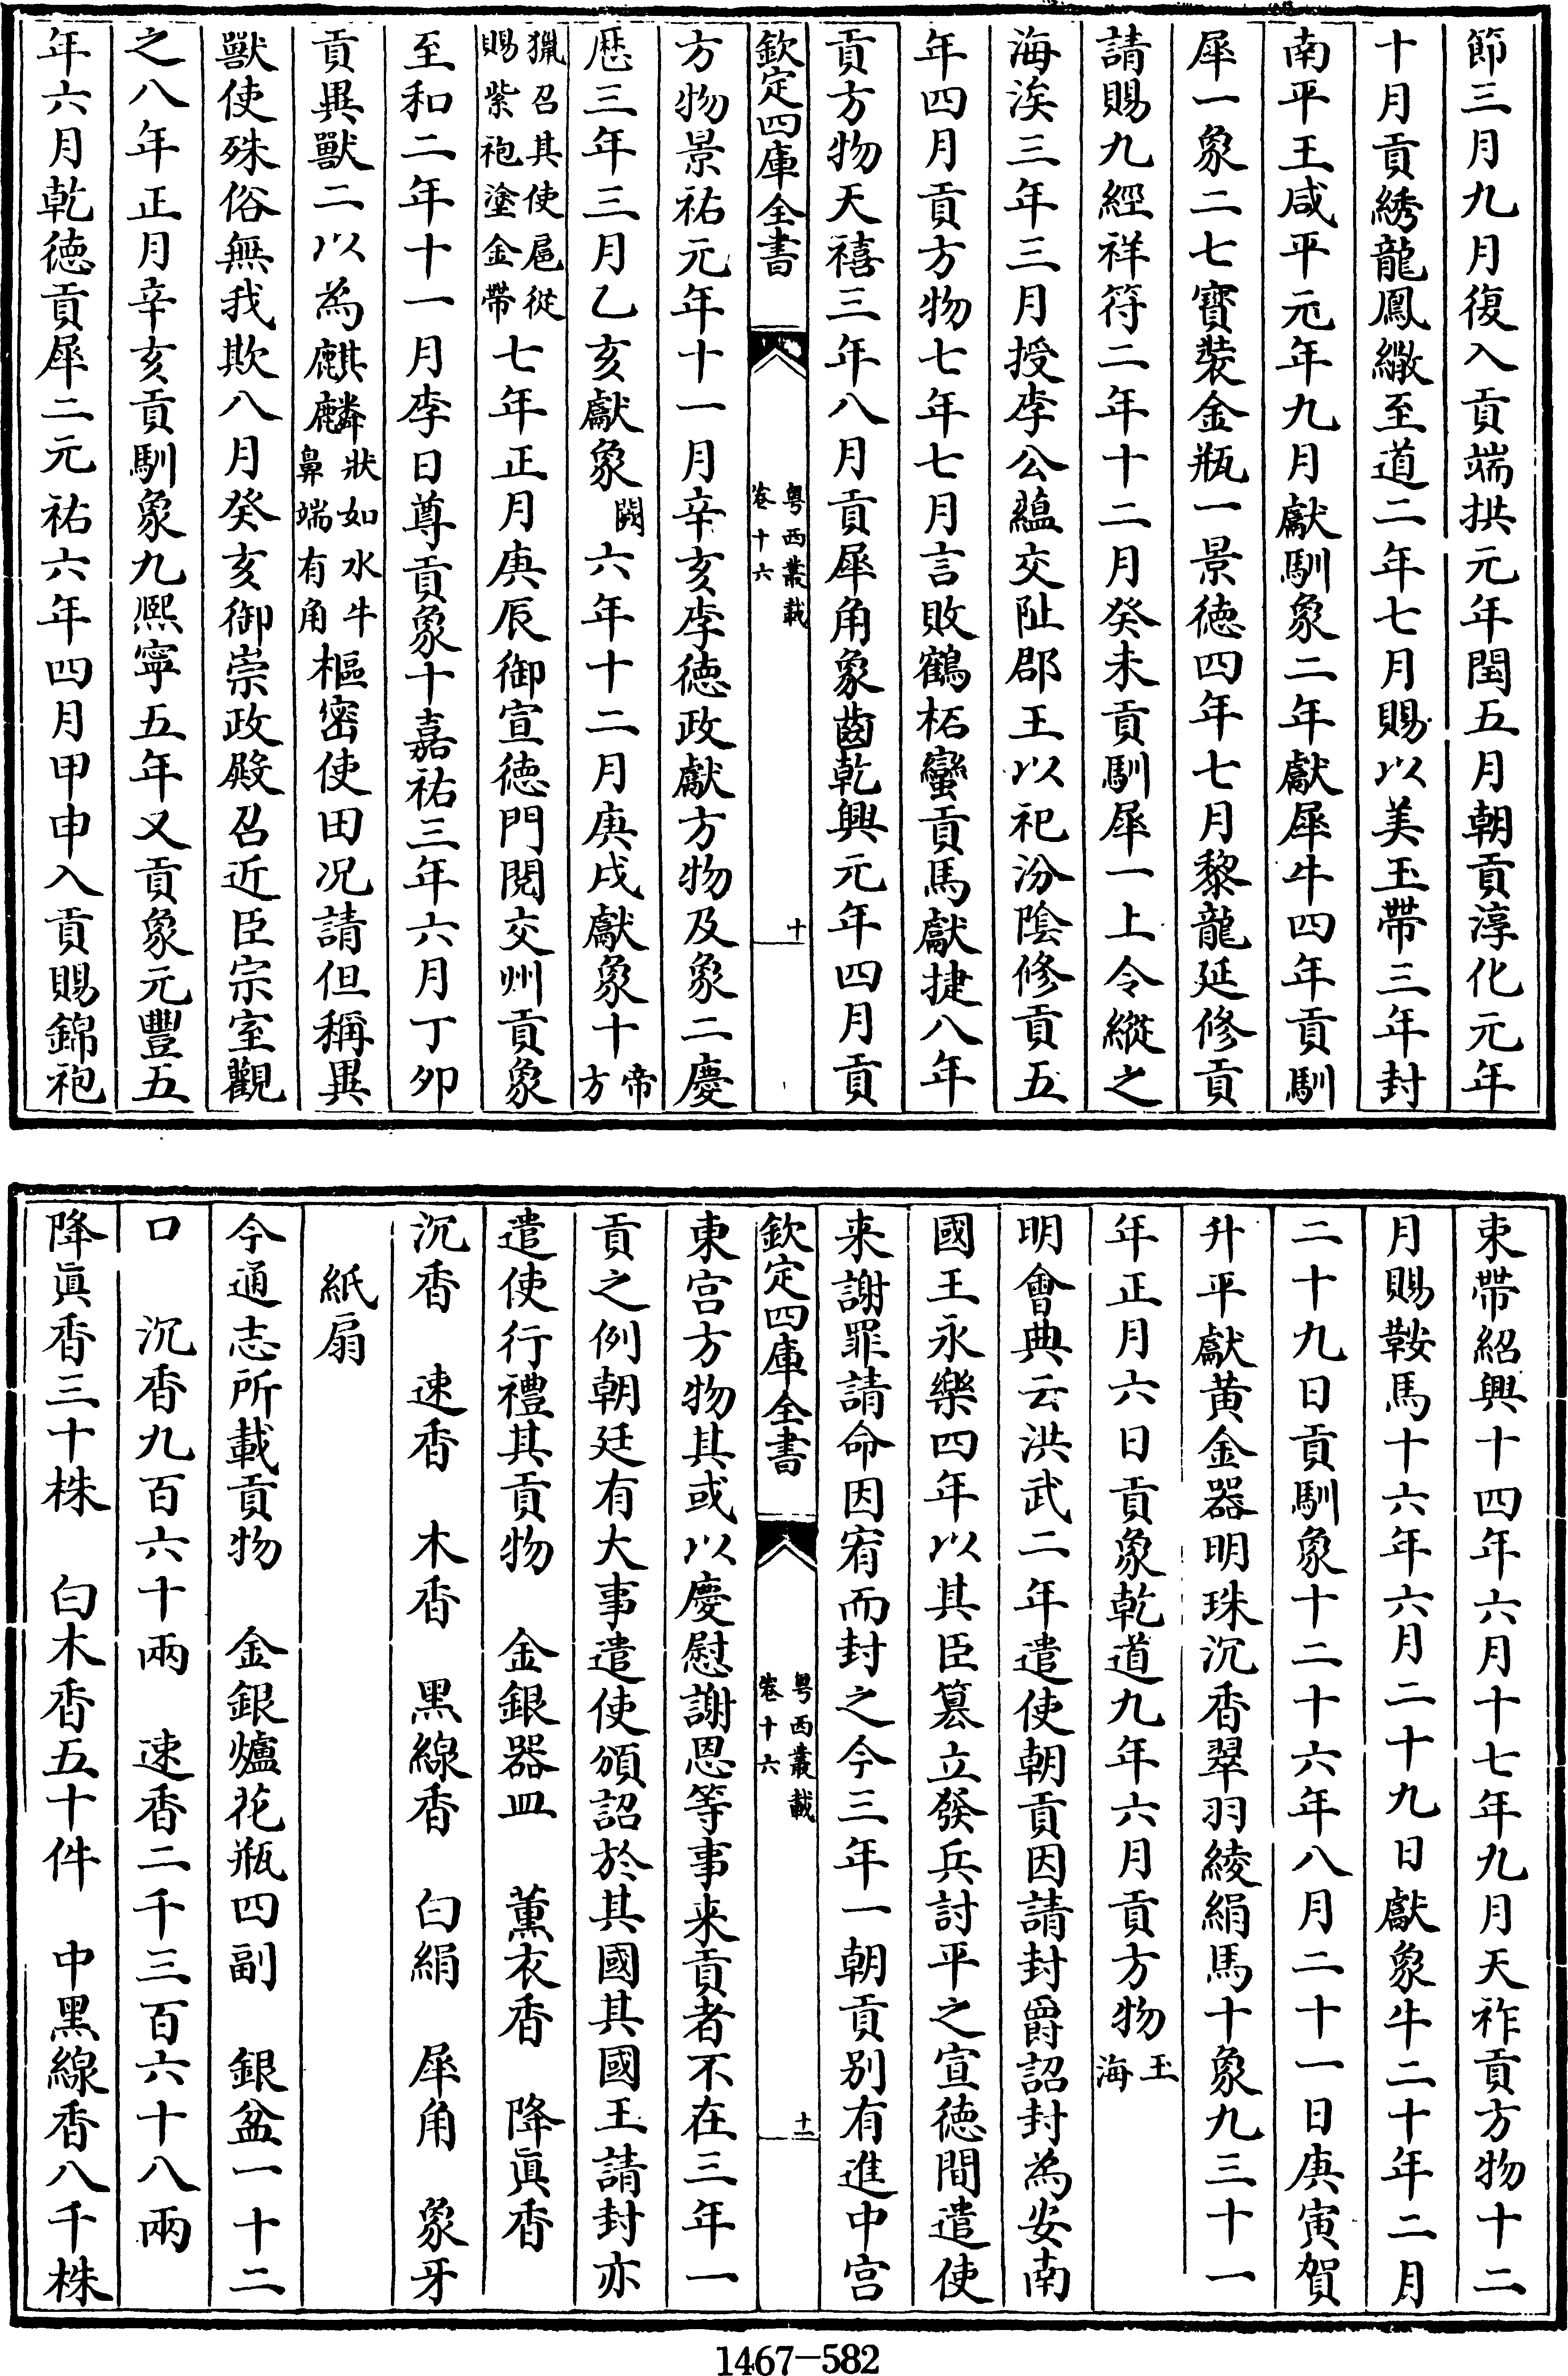 節三月九月復入貢端拱元年閏五月朝貢淳化元年
十月貢綉龍鳳繖至道二年七月賜以美玉帶三年封
南平王咸平元年九月獻馴象二年獻犀牛四年貢馴
犀一象二七寳裝金瓶一景徳四年七月黎龍延修貢
請賜九經祥符二年十二月癸未貢馴犀一上令縱之
海涘三年三月授李公蘊交阯郡王以祀汾隂修貢五
年四月貢方物七年七月言敗鶴柘蠻貢馬獻捷八年
貢方物天禧三年八月貢犀角象齒乾興元年四月貢
欽定四庫全書
粤西叢載
卷十六
十
方物景祐元年十一月辛亥李徳政獻方物及象二慶
厯三年三月乙亥獻象闕六年十二月庚戌獻象十帝方
獵召其使扈從賜紫袍塗金帶七年正月庚辰御宣徳門閱交州貢象
至和二年十一月李日尊貢象十嘉祐三年六月丁夘
貢異獸二以為麒麟狀如水牛鼻端有角樞密使田况請但稱異
獸使殊俗無我欺八月癸亥御崇政殿召近臣宗室觀
之八年正月辛亥貢馴象九熙寧五年又貢象元豐五
年六月乾徳貢犀二元祐六年四月甲申入貢賜錦袍
束帶紹興十四年六月十七年九月天祚貢方物十二
月賜鞍馬十六年六月二十九日獻象牛二十年二月
二十九日貢馴象十二十六年八月二十一日庚寅賀
升平獻黄金器明珠沉香翠羽綾絹馬十象九三十一
年正月六日貢象乾道九年六月貢方物玉海
明會典云洪武二年遣使朝貢因請封爵詔封為安南
國王永樂四年以其臣篡立發兵討平之宣徳間遣使
来謝罪請命因宥而封之今三年一朝貢别有進中宫
欽定四庫全書
粤西叢載
卷十六
十一
東宫方物其或以慶慰謝恩等事来貢者不在三年一
貢之例朝廷有大事遣使頒詔於其國其國王請封亦
遣使行禮其貢物　金銀器皿　薰衣香　降眞香
沉香　速香　木香　黒線香　白絹　犀角　象牙
紙扇
今通志所載貢物　金銀爐花瓶四副　銀盆一十二
口　沉香九百六十兩　速香二千三百六十八兩
降眞香三十株　白木香五十件　中黒線香八千株
1467-582